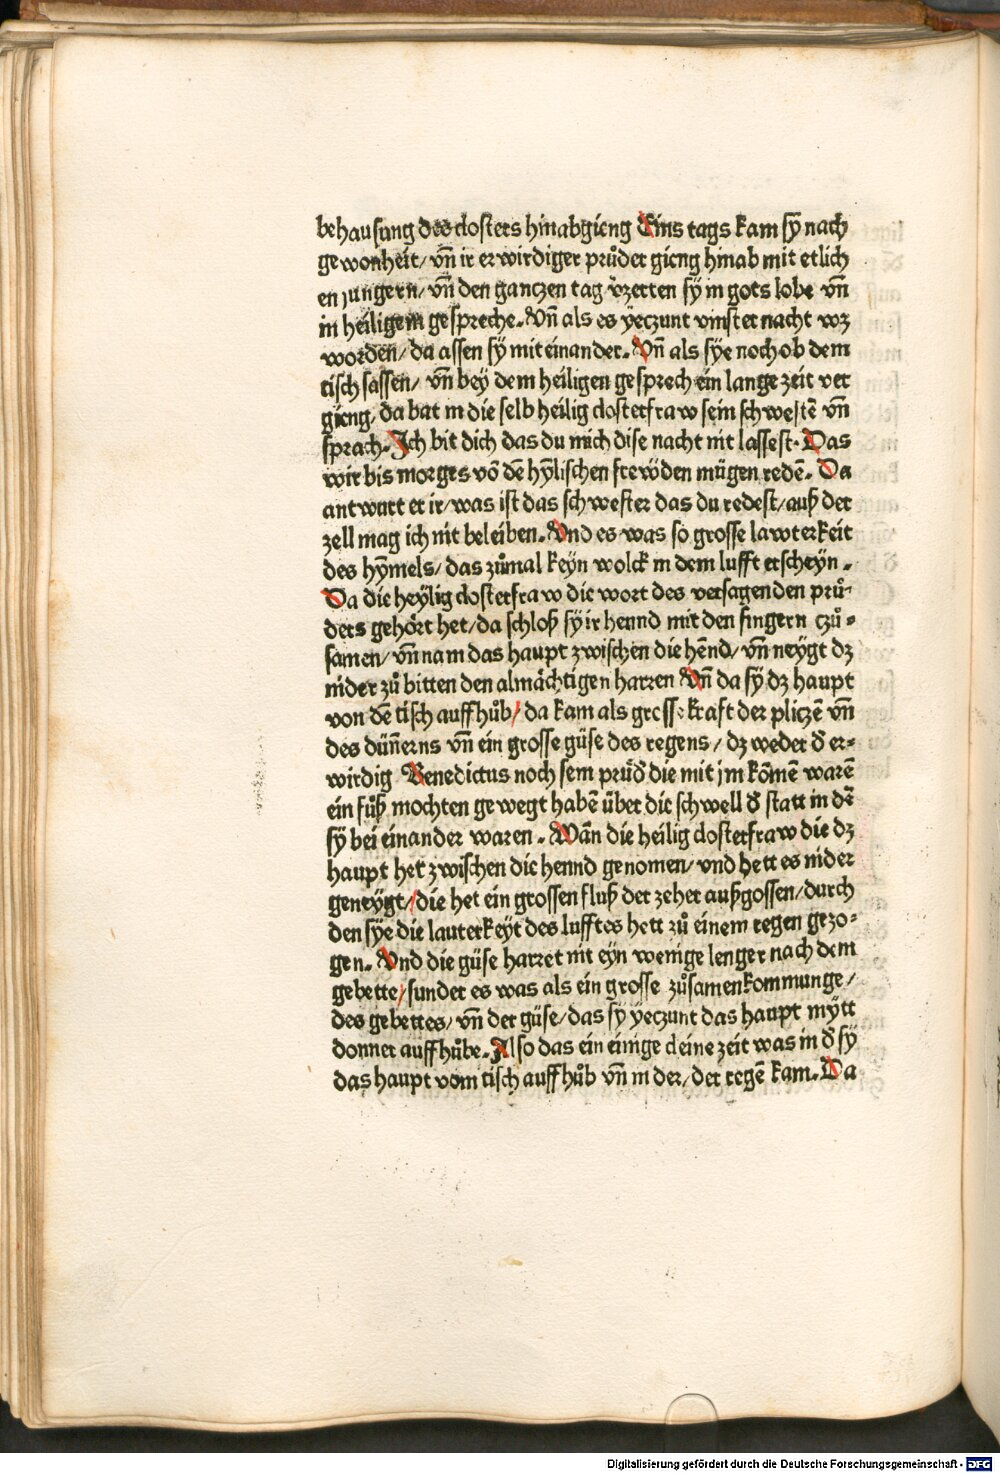 behausung des closters hinabgieng Eins tags kam sÿ nach
gewonheit/ vn̄ ir erwirdiger průder gieng hinab mit etlich
en jungern/ vn̄ den ganczen tag v̈zerten sÿ in gots lobe vn̄
in heiligem gespreche. Vn̄ als es yeczunt vinster nacht wz
worden/ da assen sÿ miteinander. Vn̄ als sÿe noch ob dem
tisch sassen/ vn̄ beÿ dem heiligen gesprech ein lange zeit ver
gieng/ da bat in die selb heilig closterfraw sein schwestē vn̄
sprach. Ich bit dich das du mich dise nacht nit lassest. Das
wir bis morges vō dē hȳlischen frewden mügen redē. Da
antwurt er ir/ was ist das schwester das du redest/ auß der
zell mag ich nit beleiben. Vnd es was so grosse lawterkeit
des hȳmels/ das zůmal keyn wolck in dem lufft erscheÿn.
Da die heÿlig closterfraw die wort des versagenden prů-
ders gehört het/ da schloß sÿ ir hennd mit den fingern czů-
samen/ vn̄ nam das haupt zwischen die hēnd/ vn̄ neÿgt dz
nider zů bitten den almächtigen harren Vn̄ da sÿ dz haupt
von dē tisch auffhůb/ da kam als grosse kraft der pliczē vn̄
des dün̄erns vn̄ ein grosse güse des regens/ dz weder d̄ er-
wirdig Benedictus noch sein prüd̄ die mit jm kōmē warē
ein fůß mochten gewegt habē über die schwell d̄ statt in dē
sÿ bei einander waren. Wān die heilig closterfraw die dz
haupt het zwischen die hennd genomen/ vnd hett es nider
geneÿgt/ die het ein grossen fluß der zeher außgossen/ durch
den sÿe die lauterkeÿt des lufftes hett zů einem regen gezo-
gen. Vnd die güse harret nit eyn wenige lenger nach dem
gebette/ sunder es was als ein grosse zůsamenkommunge/
des gebettes/ vn̄ der güse/ das sy yeczunt das haupt mÿtt
donner auffhůbe. Also das ein einige cleine zeit was in d̄ sÿ
das haupt vom tisch auffhůb vn̄ in der/ der regē kam. Da
Digitalisierung gefördert durch die Deutsche Forschungsgemeinschaft - DFG